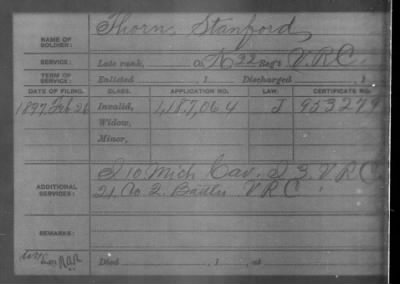 NAME OF SOLDIER: Thorn, Stanford
SERVICE: Late rank, Co K 22 Reg't V.R.C.
TERM OF SERVICE: Enlisted , 1 Discharged , 1
DATE OF FILING. CLASS. APPLICATION NO. LAW. CERTIFICATE NO.
1897 Feb 26 Invalid, 1,187,064 J 953279
Widow,
Minor,
ADDITIONAL SERVICES: I 10 Mich Cav. I 3 V R C
21 Co 2. Batt'n V R C
REMARKS:
Died , 1 , at